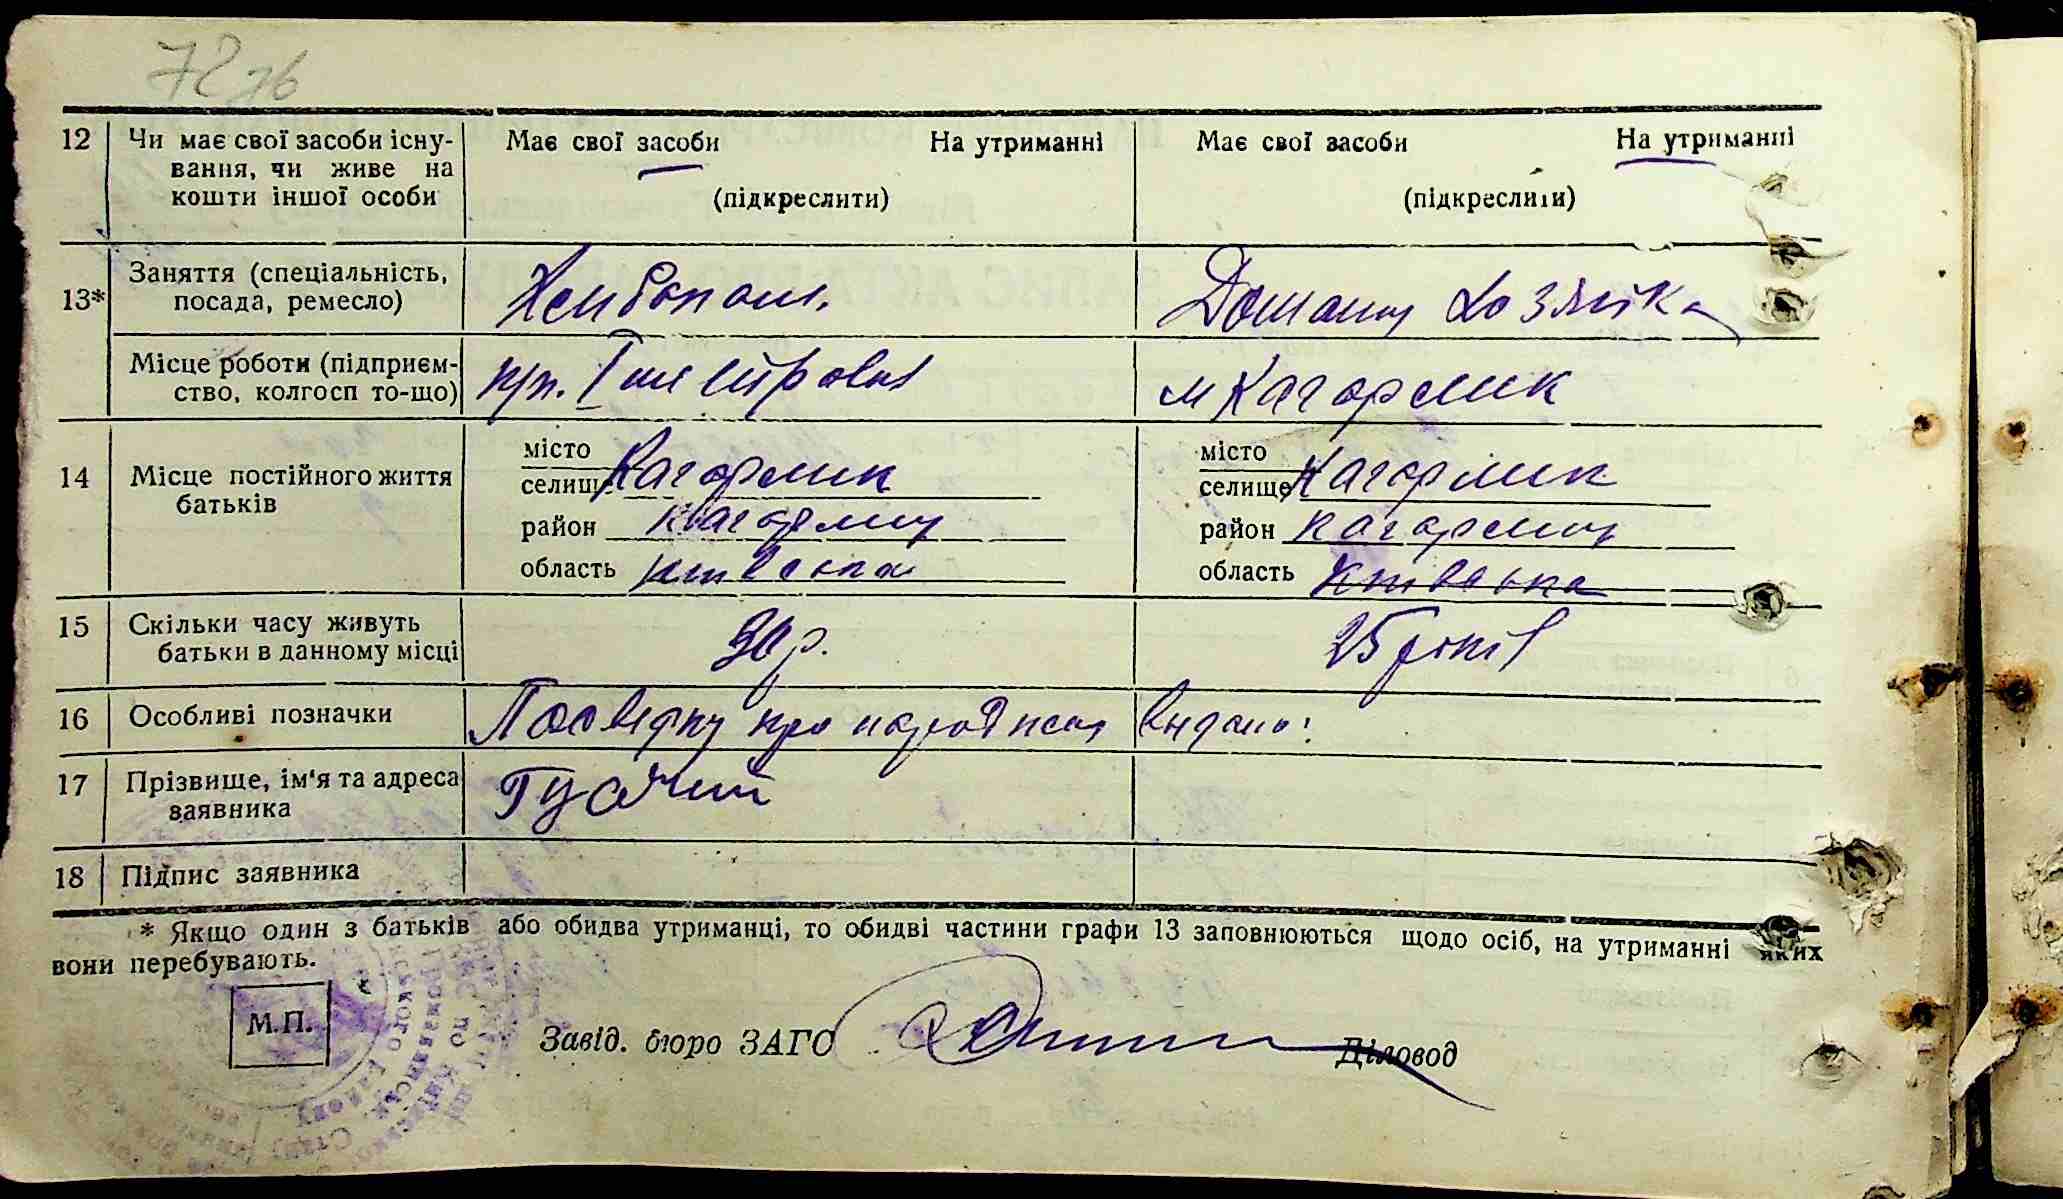 72 зв
12 Чи має свої засоби існу-
вання, чи живе на
кошти іншої особи
Має свої засоби На утриманні
(підкреслити)
Має свої засоби На утриманні
(підкреслити)
13* Заняття (спеціальність,
посада, ремесло)
Домашня хозяйка
Місце роботи (підприєм-
ство, колгосп то-що)
м Кагарлик
14 Місце постійного життя
батьків
місто
селище Кагарлик
район Кагарлицьк
область Київська
місто
селище Кагарлик
район Кагарлицьк
область Київська
15 Скільки часу живуть
батьки в данному місці
30 р.
25 років
16 Особливі позначки
Посвідку про народження видано:
17 Прізвище, ім'я та адреса
заявника
18 Підпис заявника
* Якщо один з батьків або обидва утриманці, то обидві частини графи 13 заповнюються щодо осіб, на утриманні яких
вони перебувають.
М.П.
Завід. бюро ЗАГС
Діловод